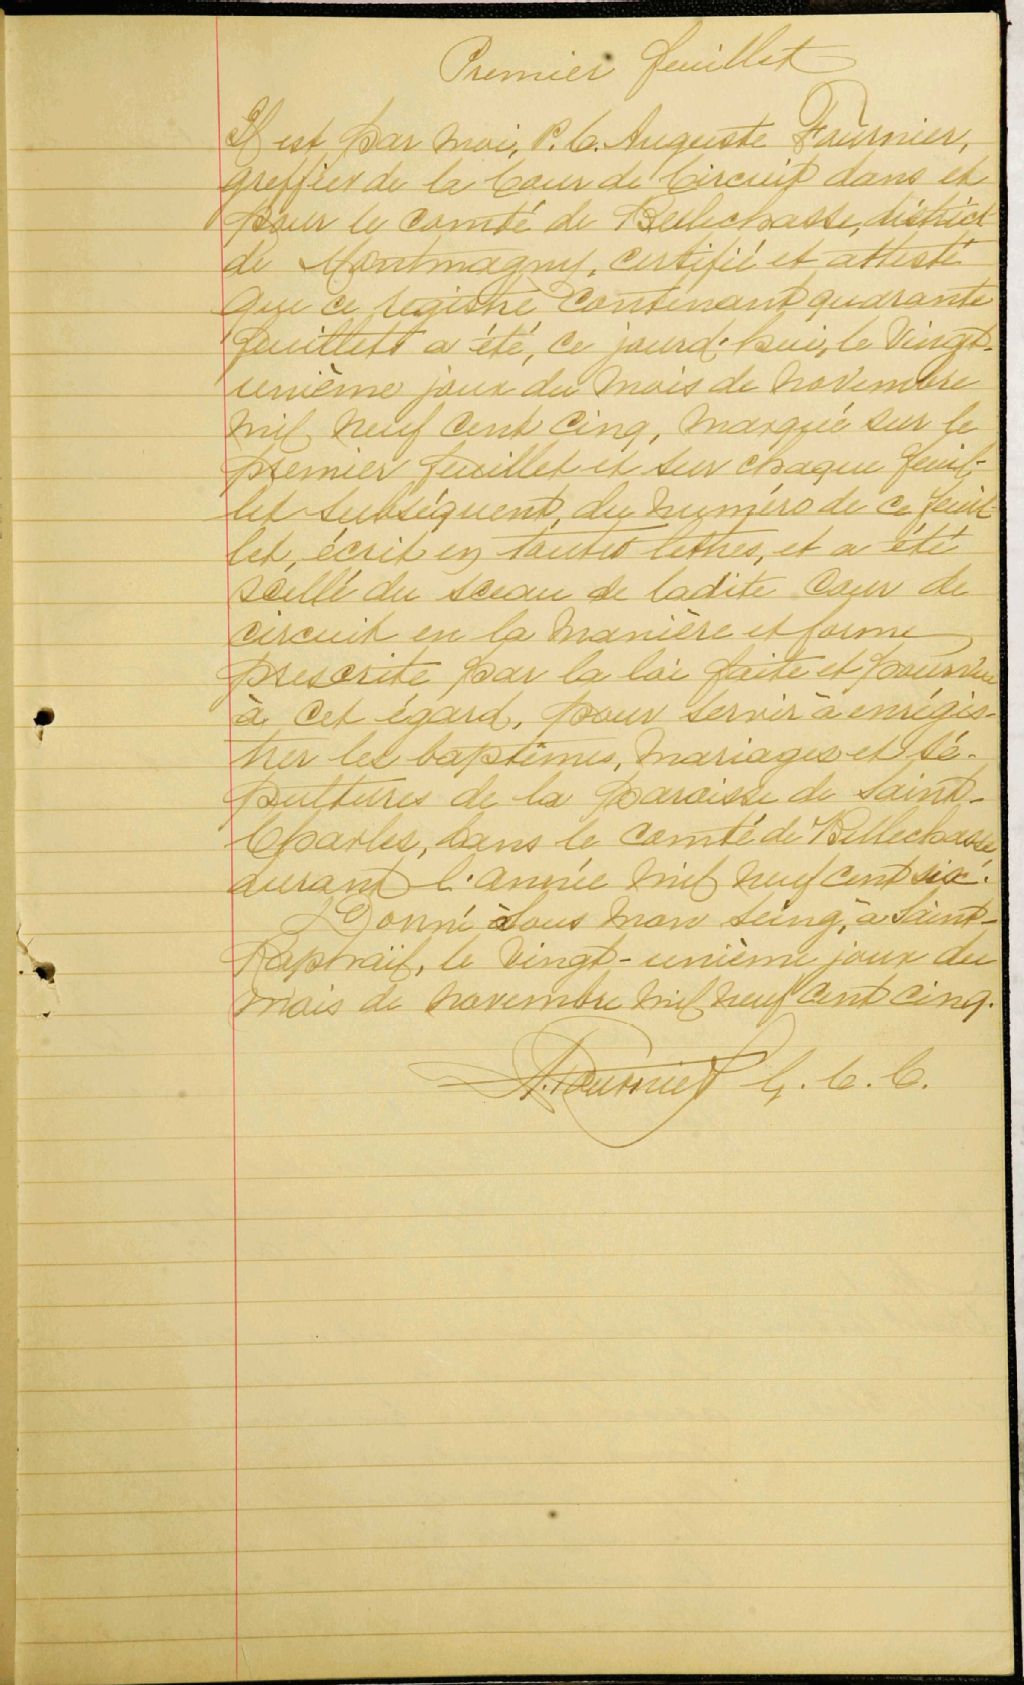 Premier feuillet
Il est par moi, P. C. Auguste Fournier,
greffier de la Cour de Circuit dans et
pour le comté de Bellechasse, district
de Montmagny, certifié et attesté
que ce registre contenant quarante
feuillets a été, ce jourd'hui, le vingt-
unième jour du mois de novembre
mil neuf cent cinq, marqué sur le
premier feuillet et sur chaque feuil-
let subséquent, du numéro de ce feuil-
let, écrit en toutes lettres, et a été
scellé du sceau de ladite Cour de
circuit en la manière et forme
prescrite par la loi faite et pourvue
à cet égard, pour servir à enrégis-
trer les baptêmes, mariages et sé-
pultures de la paroisse de Saint-
Charles, dans le comté de Bellechasse
durant l'année mil neuf cent six.
Donné sous mon seing, à Saint-
Raphaël, le vingt-unième jour du
mois de novembre mil neuf cent cinq.
A. Fournier G. C. C.